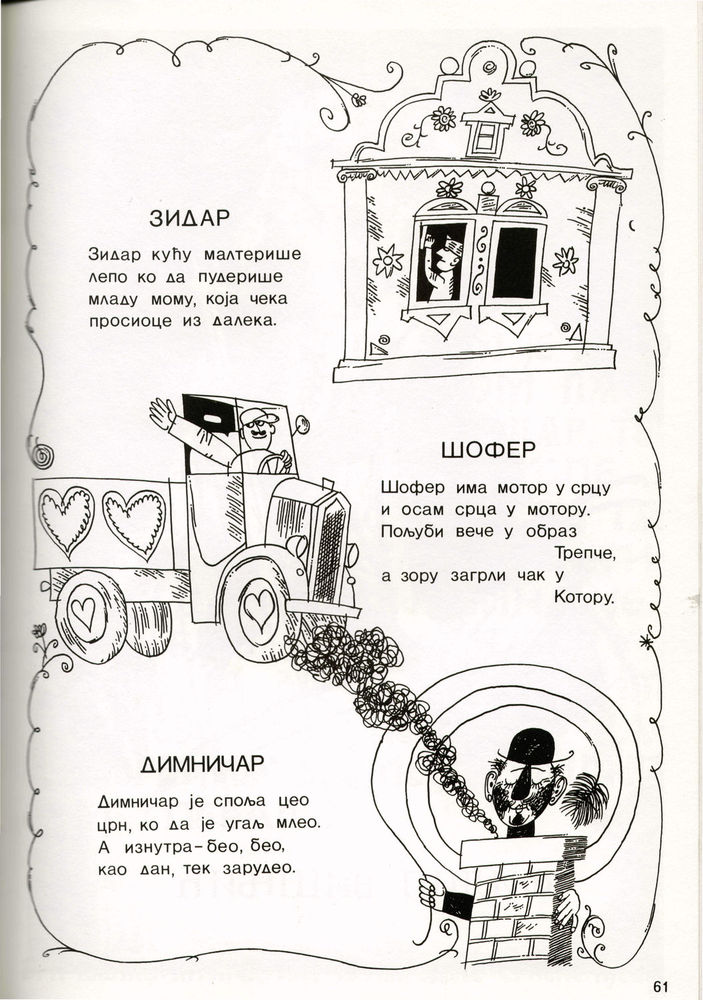 ЗИДАР
Зидар кућу малтерише
лепо ко да пудерише
младу мому, која чека
просиоце из далека.
ШОФЕР
Шофер има мотор у срцу
и осам срца у мотору.
Пољуби вече у образ
Трепче,
а зору загрли чак у
Котору.
ДИМНИЧАР
Димничар је споља цео
црн, ко да је угаљ млео.
А изнутра-бео, бео,
као дан, тек зарудео.
61